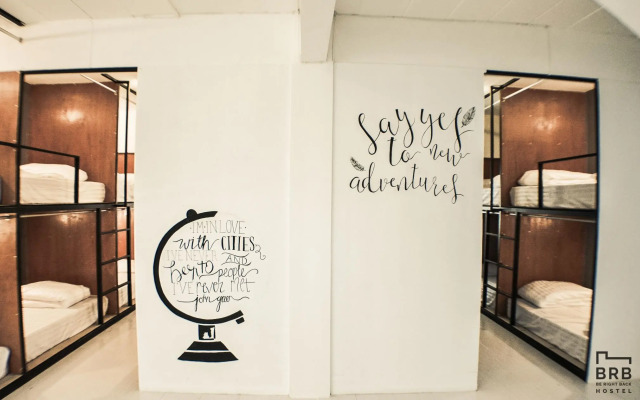 I'M IN LOVE
with CITIES
I'VE NEVER
BEEN TO AND
people
I'VE NEVER MET
john green
say yes
to new
adventures
BRB
BE RIGHT BACK
HOSTEL